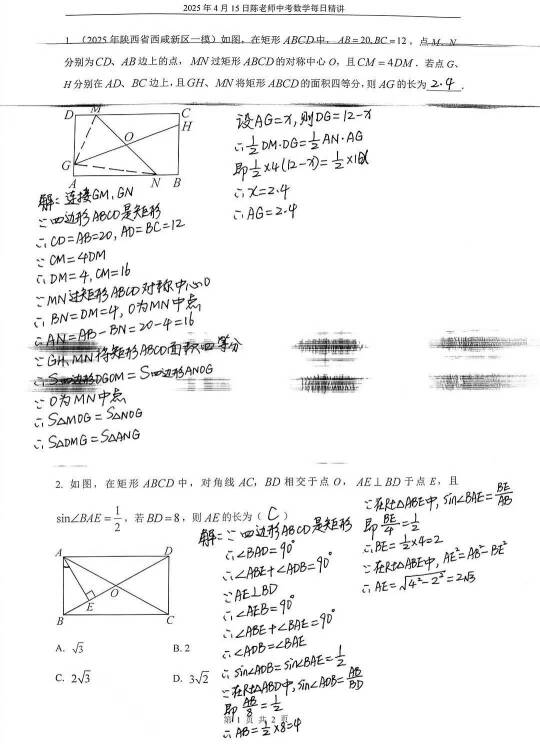 2025 年 4 月 15 日陈老师中考数学每日精讲
1. (2025 年陕西省西咸新区一模) 如图，在矩形 ABCD 中，AB=20，BC=12，点 M、N
分别为 CD、AB 边上的点，MN 过矩形 ABCD 的对称中心 O，且 CM=4DM．若点 G、
H 分别在 AD、BC 边上，且 GH、MN 将矩形 ABCD 的面积四等分，则 AG 的长为 2.4．
D M C
H
O
G
A N B
设AG=x，则DG=12-x
∴½DM·DG=½AN·AG
即½×4(12-x)=½×16x
∴x=2.4
∴AG=2.4
解：连接GM，GN
∵四边形ABCD是矩形
∴CD=AB=20，AD=BC=12
∵CM=4DM
∴DM=4，CM=16
∵MN过矩形ABCD对称中心O
∴BN=DM=4，O为MN中点
∴AN=AB-BN=20-4=16
∵GH、MN将矩形ABCD面积四等分
∴S四边形DGOM=S四边形ANOG
∵O为MN中点
∴S△MOG=S△NOG
∴S△DMG=S△ANG
2. 如图，在矩形 ABCD 中，对角线 AC，BD 相交于点 O，AE⊥BD 于点 E，且
sin∠BAE=1/2，若 BD=8，则 AE 的长为（ C ）
A D
O
E
B C
A. √3 B. 2
C. 2√3 D. 3√2
解：∵四边形ABCD是矩形
∴∠BAD=90°
∴∠ABE+∠ADB=90°
∵AE⊥BD
∴∠AEB=90°
∴∠ABE+∠BAE=90°
∴∠ADB=∠BAE
∴sin∠ADB=sin∠BAE=1/2
∵在Rt△ABD中，sin∠ADB=AB/BD
即AB/8=1/2
∴AB=½×8=4
∵在Rt△ABE中，sin∠BAE=BE/AB
即BE/4=1/2
∴BE=½×4=2
∵在Rt△ABE中，AE²=AB²-BE²
∴AE=√(4²-2²)=2√3
第 1 页 共 2 页